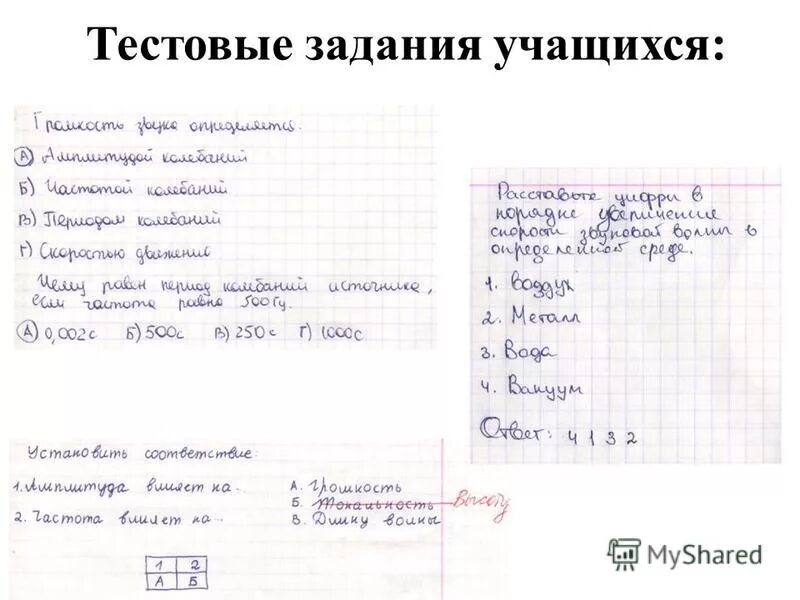 Тестовые задания учащихся:
Громкость звука определяется.
А) Амплитудой колебаний
Б) Частотой колебаний
В) Периодом колебаний
Г) Скоростью движение
Чему равен период колебаний источника,
если частота равна 500 Гц.
А) 0,002 с Б) 500 с В) 250 с Г) 1000 с
Расставьте цифри в
порядке увеличение
скорости звуковой волны в
определенной среде.
1. Воздух
2. Металл
3. Вода
4. Вакуум
Ответ: 4 1 3 2
Установить соответствие:
1. Амплитуда влияет на...
2. Частота влияет на...
А. Громкость
Б. Тональность Высоту
В. Длину волны
1 2
А Б
MyShared